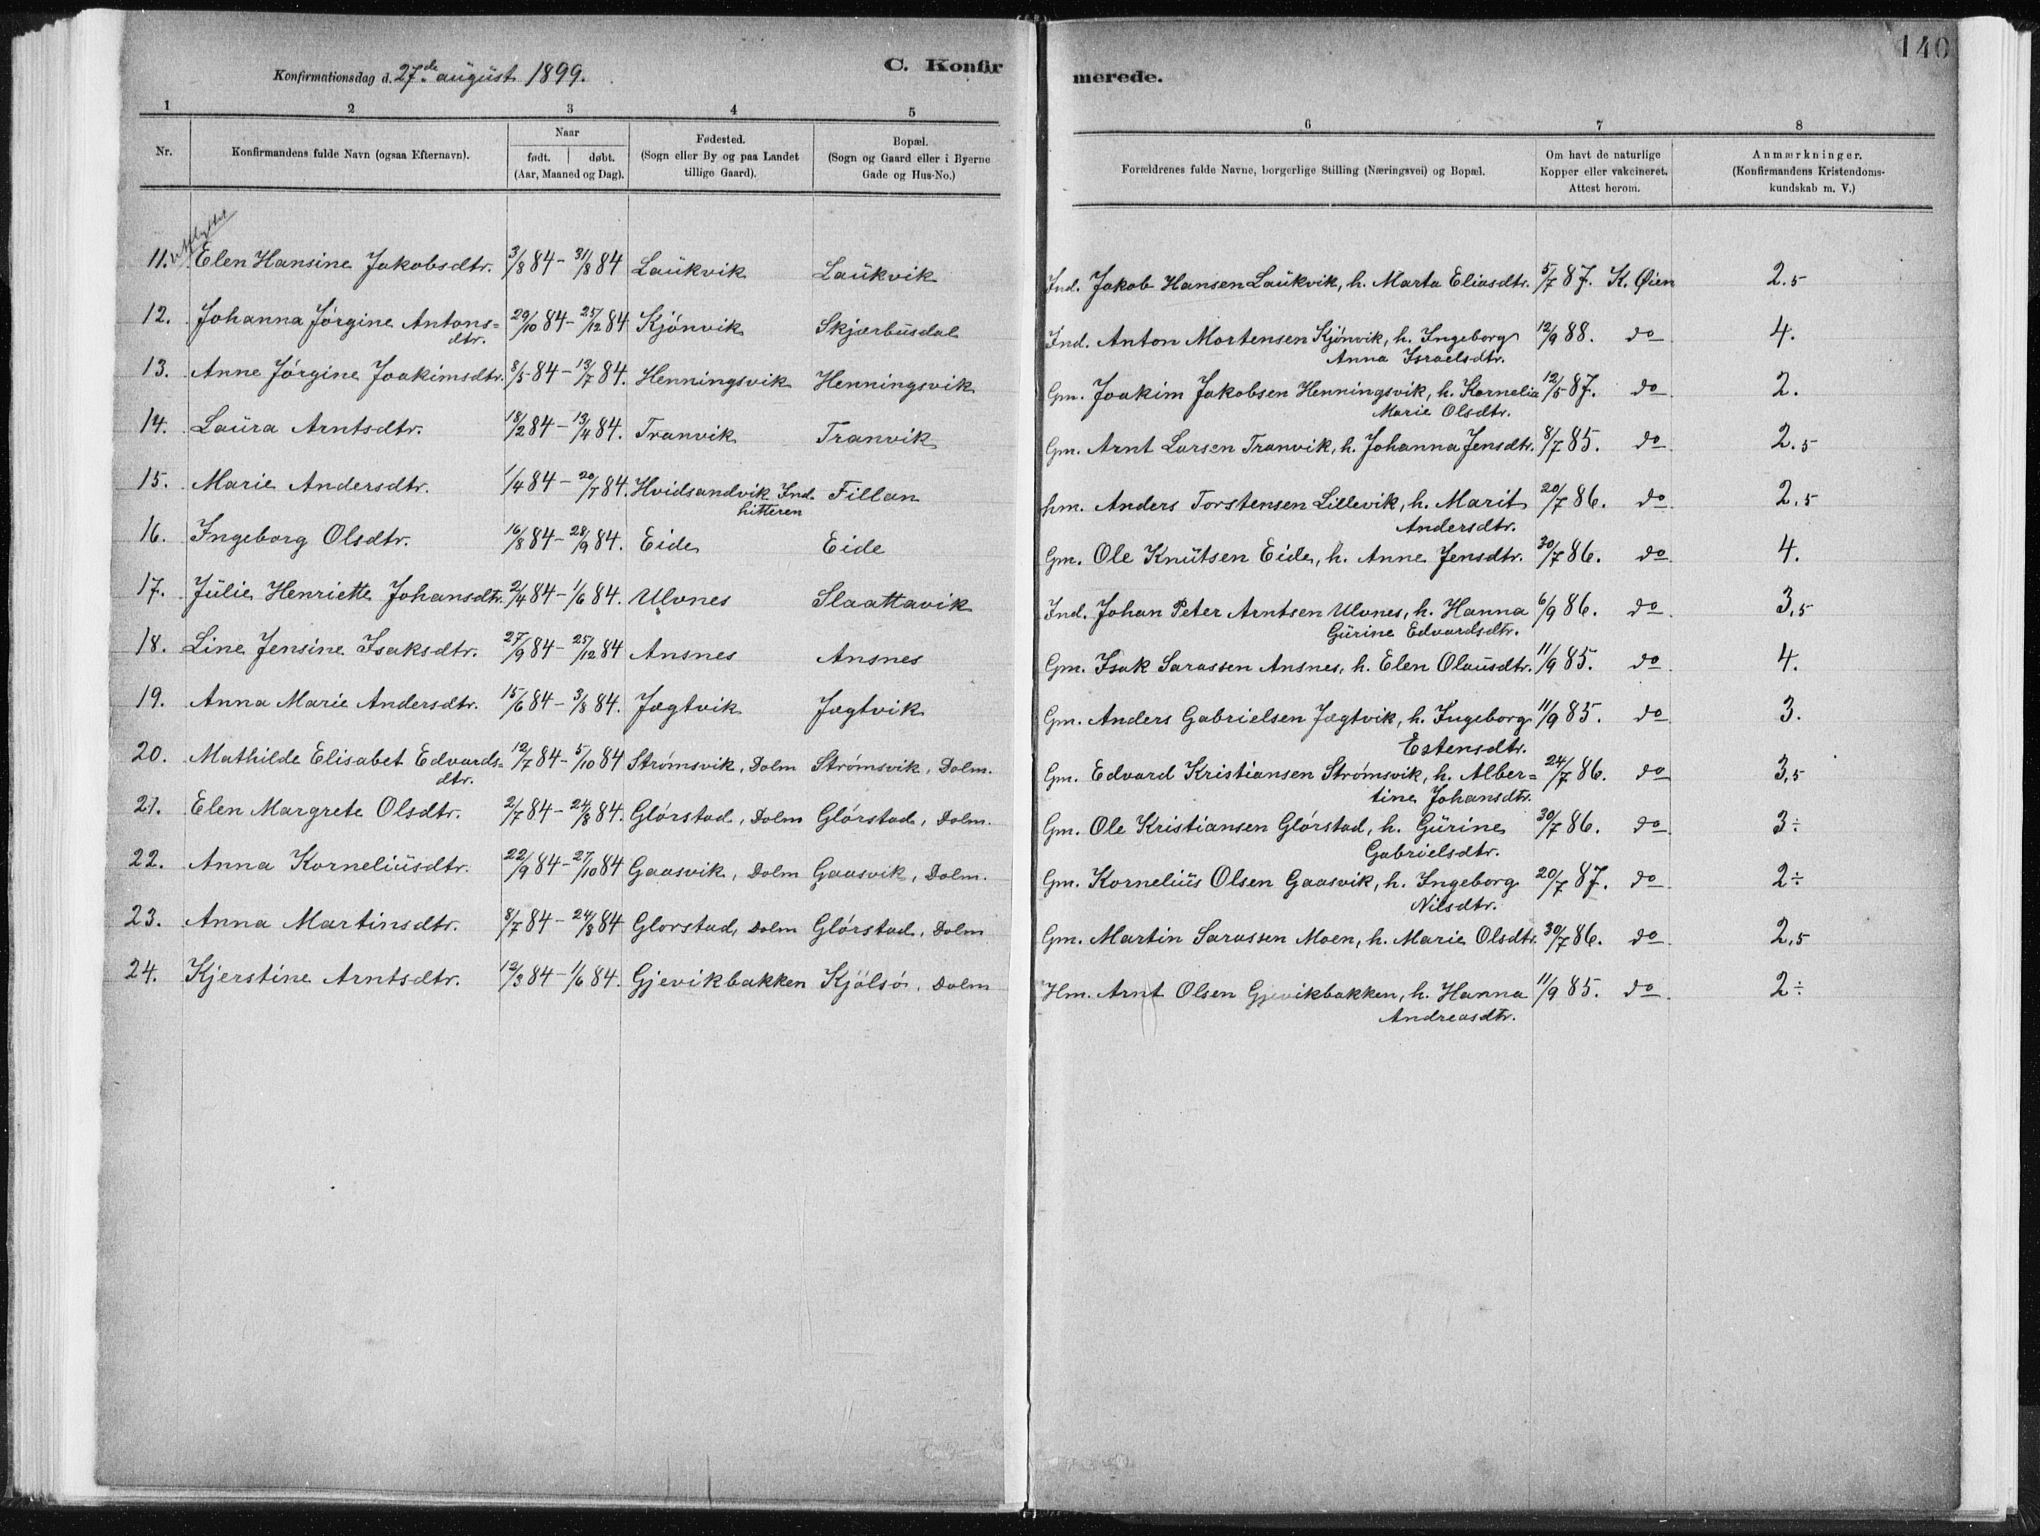 140
Konfirmationsdag d. 27de august 1899. C. Konfirmerede.
1 2 3 4 5 6 7 8
Nr. Konfirmandens fulde Navn (ogsaa Efternavn). Naar født. døbt. (Aar, Maaned og Dag). Fødested. (Sogn eller By og paa Landet tillige Gaard). Bopæl. (Sogn og Gaard eller i Byerne Gade og Hus-No.) Forældrenes fulde Navne, borgerlige Stilling (Næringsvei) og Bopæl. Om havt de naturlige Kopper eller vakcineret. Attest herom. Anmærkninger. (Konfirmandens Kristendomskundskab m. V.)
11. Elen Hansine Jakobsdtr. 3/8 84 - 31/8 84 Laŭkvik Laŭkvik Ind. Jakob Hansen Laŭkvik, h. Marta Eliasdtr. 5/7 87. K. Øien 2.5
12. Johanna Jørgine Antons=dtr. 29/10 84 - 25/12 84 Kjønvik Skjærbusdal Ind. Anton Mortensen Kjønvik, h. Ingeborg Anna Israelsdtr. 12/9 88. do 4.
13. Anne Jørgine Joakimsdtr. 8/5 84 - 13/7 84. Henningsvik Henningsvik Gm. Joakim Jakobsen Henningsvik, h. Kornelia Marie Olsdtr. 12/5 87. do 2.
14. Laŭra Arntsdtr. 18/2 84 - 13/4 84. Tranvik Tranvik Gm. Arnt Larsen Tranvik, h. Johanna Jensdtr. 8/7 85. do 2.5
15. Marie Andersdtr. 1/4 84 - 20/7 84. Hvidsandvik Ind. hitteren Fillan hm. Anders Torstensen Lillevik, h. Marit Andersdtr. 20/7 86. do 2.5
16. Ingeborg Olsdtr. 16/8 84 - 28/9 84. Eide Eide Gm. Ole Knŭtsen Eide, h. Anne Jensdtr. 30/7 86. do 4.
17. Jŭlie Henriette Johansdtr. 2/4 84 - 1/6 84. Ulvnes Slaattavik Ind. Johan Peter Arntsen Ulvnes, h. Hanna Gŭrine Edvardsdtr. 6/9 86. do 3,5
18. Line Jensine Isaksdtr. 27/9 84 - 25/12 84 Ansnes Ansnes Gm. Isak Sarassen Ansnes, h. Elen Olaŭsdtr. 11/9 85. do 4.
19. Anna Marie Andersdtr. 15/6 84 - 3/8 84. Jægtvik Jægtvik Gm. Anders Gabrielsen Jægtvik, h. Ingeborg Estensdtr. 11/9 85. do 3.
20. Mathilde Elisabet Edvards=dtr. 12/7 84 - 5/10 84 Strømsvik, Dolm Strømsvik, Dolm. Gm. Edvard Kristiansen Strømsvik, h. Alber=tine Johansdtr. 24/7 86. do 3,5
21. Elen Margrete Olsdtr. 2/7 84 - 24/8 84. Glørstad, Dolm Glørstad, Dolm. Gm. Ole Kristiansen Glørstad, h. Gŭrine Gabrielsdtr. 30/7 86. do 3÷
22. Anna Korneliŭsdtr. 22/9 84 - 27/10 84 Gaasvik, Dolm Gaasvik, Dolm. Gm. Korneliŭs Olsen Gaasvik, h. Ingeborg Nilsdtr. 20/7 87. do 2÷
23. Anna Martinsdtr. 8/7 84 - 24/8 84 Glorstad, Dolm Glørstad, Dolm Gm. Martin Sarassen Moen, h. Marie Olsdtr. 30/7 86. do 2,5
24. Kjerstine Arntsdtr. 12/3 84 - 1/6 84. Gjevikbakken Kjølsø, Dolm Hm. Arnt Olsen Gjevikbakken, h. Hanna Andreasdtr. 11/9 85. do 2÷